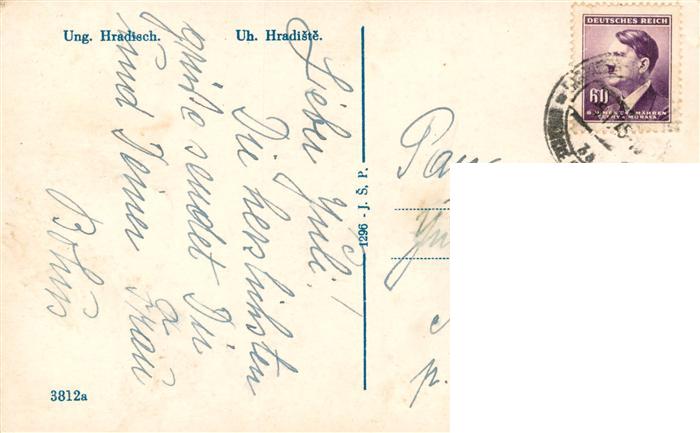 Ung. Hradisch. Uh. Hradiště.
Lieber Juli!
Die herzlichsten
grüße sendet Dir
und Deiner Frau
Bohuš
1296 - J. Š. P.
3812a
DEUTSCHES REICH
60
BÖHMEN UND MÄHREN
ČECHY A MORAVA
Pan
p.